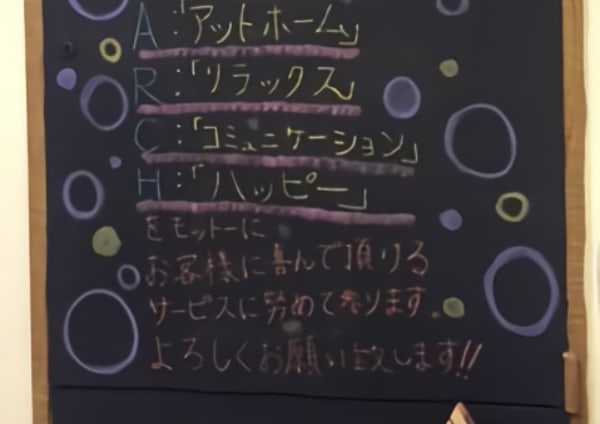 A:「アットホーム」
R:「リラックス」
C:「コミュニケーション」
H:「ハッピー」
をモットーに
お客様に喜んで頂ける
サービスに努めて参ります。
よろしくお願い致します!!